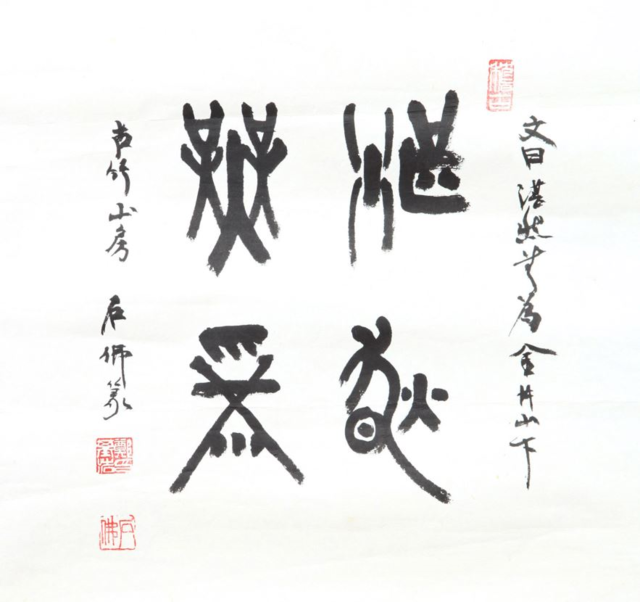 文曰湛然無為金井山下
湛然
無為
古竹山房 石佛篆
石佛